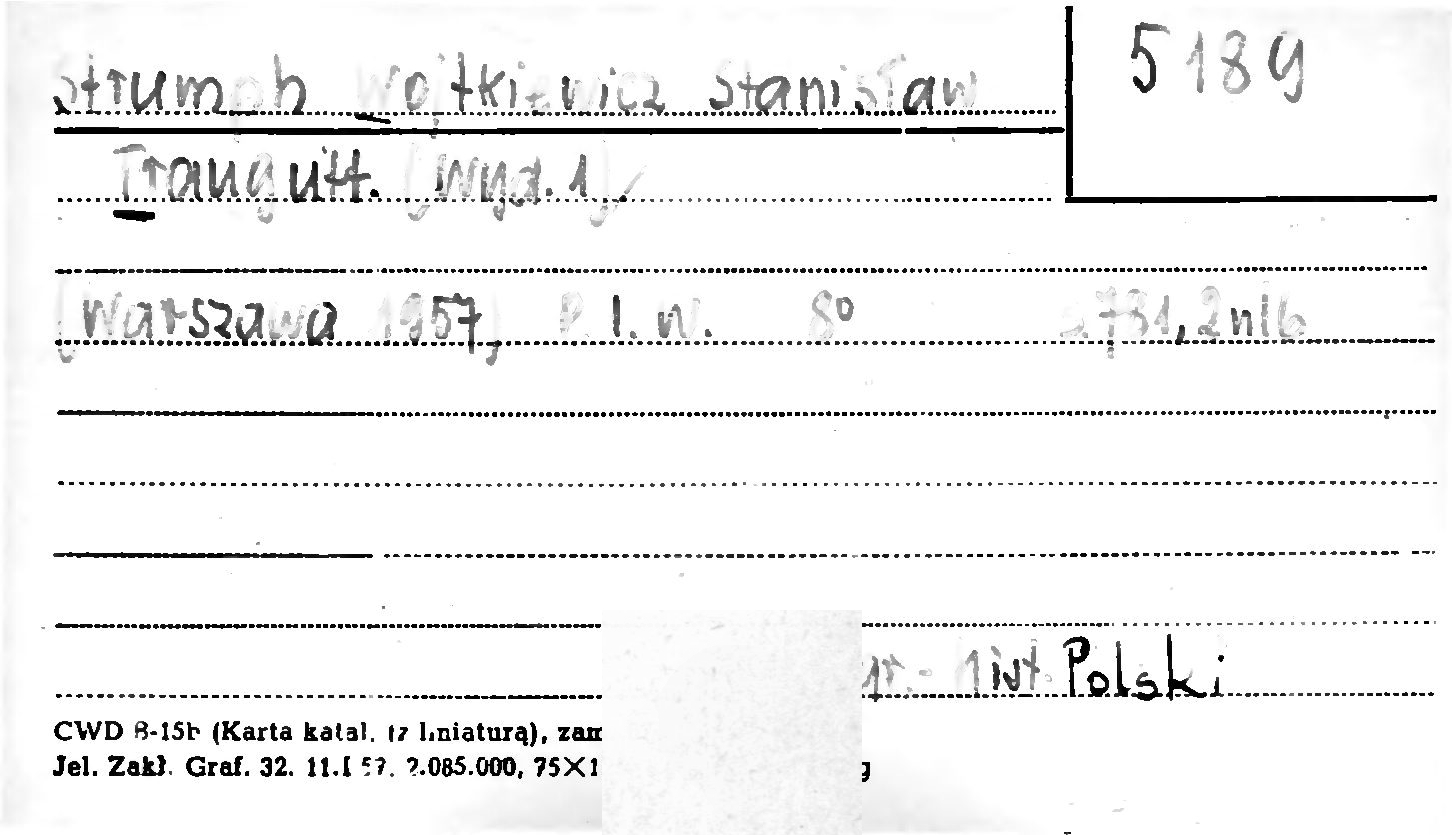 Strumph Wojtkiewicz Stanisław
5189
Traugutt. (Wyd. 1)
(Warszawa 1957) P. I. W. 8° s. 731, 2 nlb
gr.- hist. Polski
CWD B-15b (Karta katal. (z liniaturą), zam
Jel. Zakł. Graf. 32. 11.I 57. 2.085.000, 75×1